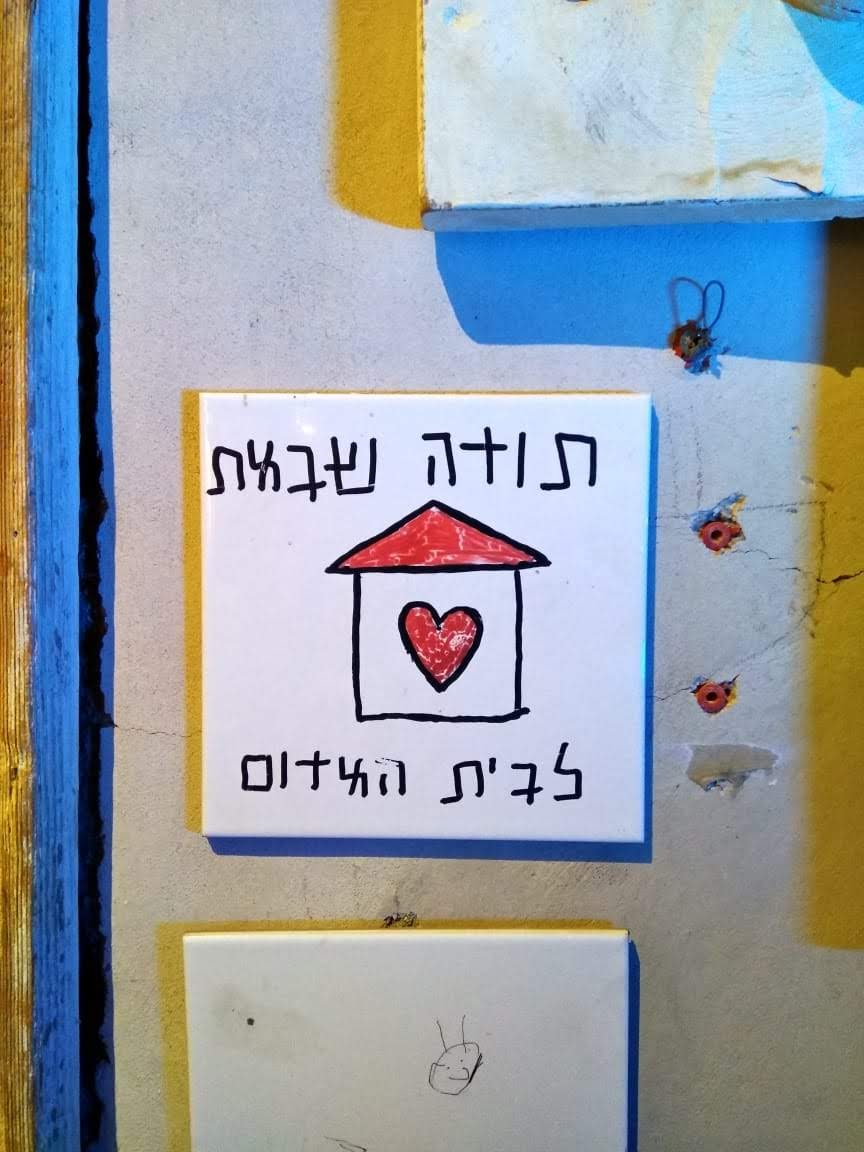 תודה שבאת
לבית האדום